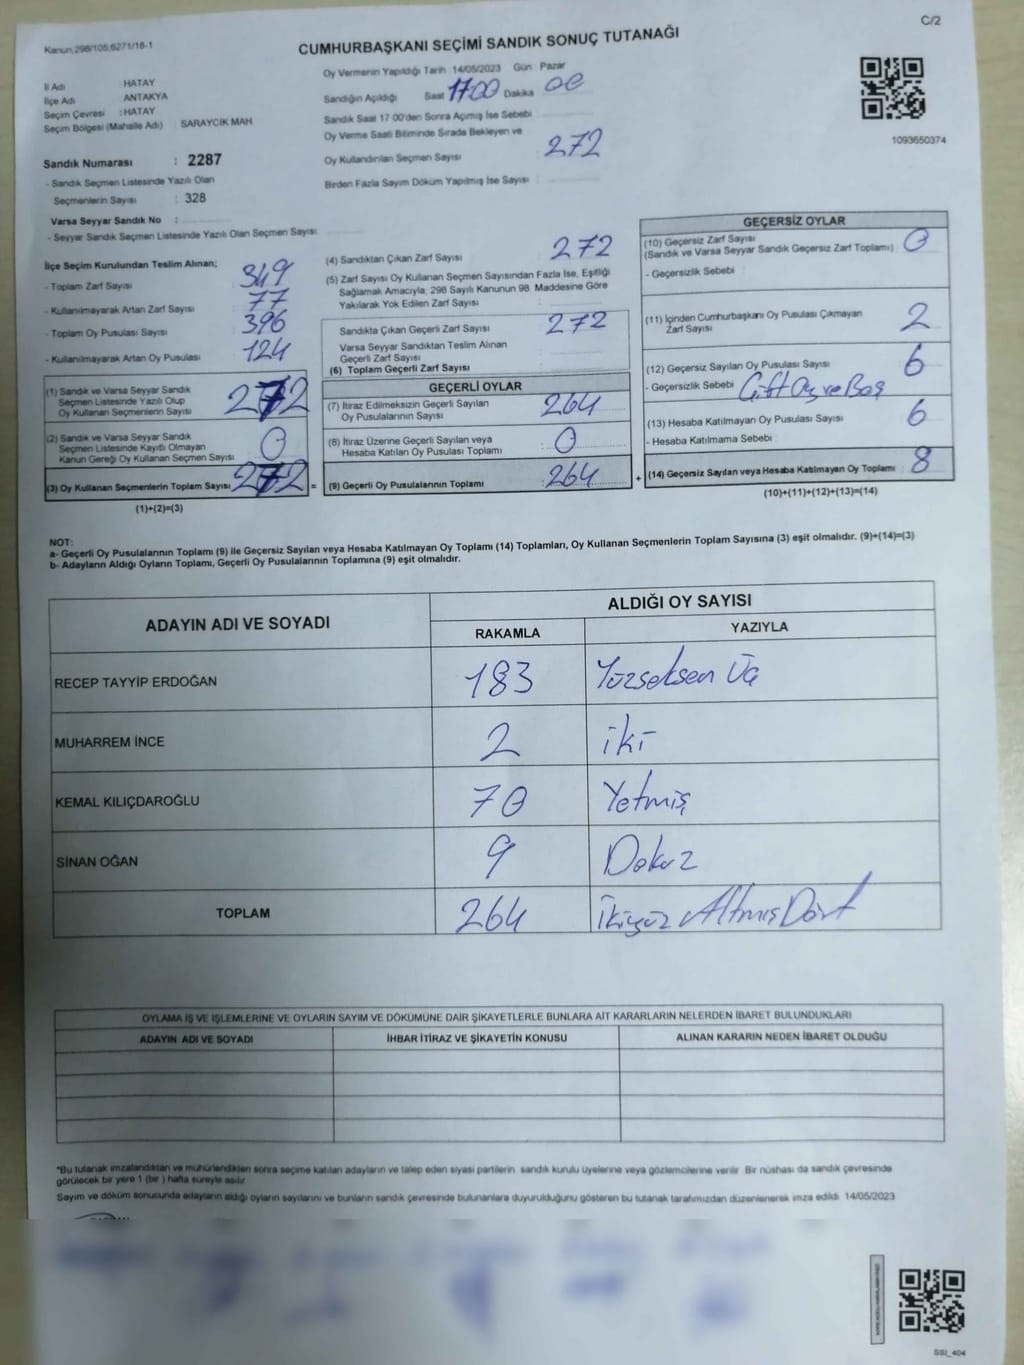 C/2
Kanun:298/105,6271/18-1
CUMHURBAŞKANI SEÇİMİ SANDIK SONUÇ TUTANAĞI
İl Adı : HATAY
İlçe Adı : ANTAKYA
Seçim Çevresi : HATAY
Seçim Bölgesi (Mahalle Adı) : SARAYCIK MAH
Sandık Numarası : 2287
- Sandık Seçmen Listesinde Yazılı Olan
Seçmenlerin Sayısı : 328
Varsa Seyyar Sandık No :
- Seyyar Sandık Seçmen Listesinde Yazılı Olan Seçmen Sayısı:
Oy Vermenin Yapıldığı Tarih :14/05/2023 Gün : Pazar
Sandığın Açıldığı Saat 1700 Dakika 00
Sandık Saat 17.00'den Sonra Açılmış İse Sebebi :
Oy Verme Saati Bitiminde Sırada Bekleyen ve
Oy Kullandırılan Seçmen Sayısı : 272
Birden Fazla Sayım Döküm Yapılmış İse Sayısı :
1093650374
İlçe Seçim Kurulundan Teslim Alınan;
- Toplam Zarf Sayısı : 349
- Kullanılmayarak Artan Zarf Sayısı : 77
- Toplam Oy Pusulası Sayısı : 396
- Kullanılmayarak Artan Oy Pusulası : 124
(1) Sandık ve Varsa Seyyar Sandık
Seçmen Listesinde Yazılı Olup
Oy Kullanan Seçmenlerin Sayısı : 272
(2) Sandık ve Varsa Seyyar Sandık
Seçmen Listesinde Kayıtlı Olmayan
Kanun Gereği Oy Kullanan Seçmen Sayısı : 0
(3) Oy Kullanan Seçmenlerin Toplam Sayısı : 272 =
(1)+(2)=(3)
(4) Sandıktan Çıkan Zarf Sayısı : 272
(5) Zarf Sayısı Oy Kullanan Seçmen Sayısından Fazla İse, Eşitliği
Sağlamak Amacıyla, 298 Sayılı Kanunun 98. Maddesine Göre
Yakılarak Yok Edilen Zarf Sayısı :
Sandıkta Çıkan Geçerli Zarf Sayısı : 272
Varsa Seyyar Sandıktan Teslim Alınan
Geçerli Zarf Sayısı :
(6) Toplam Geçerli Zarf Sayısı :
GEÇERLİ OYLAR
(7) İtiraz Edilmeksizin Geçerli Sayılan
Oy Pusulalarının Sayısı : 264
(8) İtiraz Üzerine Geçerli Sayılan veya
Hesaba Katılan Oy Pusulası Toplamı : 0
(9) Geçerli Oy Pusulalarının Toplamı : 264 +
GEÇERSİZ OYLAR
(10) Geçersiz Zarf Sayısı : 0
(Sandık ve Varsa Seyyar Sandık Geçersiz Zarf Toplamı)
- Geçersizlik Sebebi :
(11) İçinden Cumhurbaşkanı Oy Pusulası Çıkmayan
Zarf Sayısı : 2
(12) Geçersiz Sayılan Oy Pusulası Sayısı : 6
- Geçersizlik Sebebi : Çift Oy ve Boş
(13) Hesaba Katılmayan Oy Pusulası Sayısı : 6
- Hesaba Katılmama Sebebi :
(14) Geçersiz Sayılan veya Hesaba Katılmayan Oy Toplamı : 8
(10)+(11)+(12)+(13)=(14)
NOT:
a- Geçerli Oy Pusulalarının Toplamı (9) ile Geçersiz Sayılan veya Hesaba Katılmayan Oy Toplamı (14) Toplamları, Oy Kullanan Seçmenlerin Toplam Sayısına (3) eşit olmalıdır. (9)+(14)=(3)
b- Adayların Aldığı Oyların Toplamı, Geçerli Oy Pusulalarının Toplamına (9) eşit olmalıdır.
ADAYIN ADI VE SOYADI ALDIĞI OY SAYISI
RAKAMLA YAZIYLA
RECEP TAYYİP ERDOĞAN 183 Yüzseksen Üç
MUHARREM İNCE 2 iki
KEMAL KILIÇDAROĞLU 70 Yetmiş
SİNAN OĞAN 9 Dokuz
TOPLAM 264 İkiyüz Altmış Dört
OYLAMA İŞ VE İŞLEMLERİNE VE OYLARIN SAYIM VE DÖKÜMÜNE DAİR ŞİKAYETLERLE BUNLARA AİT KARARLARIN NELERDEN İBARET BULUNDUKLARI
ADAYIN ADI VE SOYADI İHBAR İTİRAZ VE ŞİKAYETİN KONUSU ALINAN KARARIN NEDEN İBARET OLDUĞU
*Bu tutanak imzalandıktan ve mühürlendikten sonra seçime katılan adayların ve talep eden siyasi partilerin sandık kurulu üyelerine veya gözlemcilerine verilir. Bir nüshası da sandık çevresinde
görülecek bir yere 1 (bir ) hafta süreyle asılır.
Sayım ve döküm sonucunda adayların aldığı oyların sayılarını ve bunların sandık çevresinde bulunanlara duyurulduğunu gösteren bu tutanak tarafımızdan düzenlenerek imza edildi. 14/05/2023
SSI_404